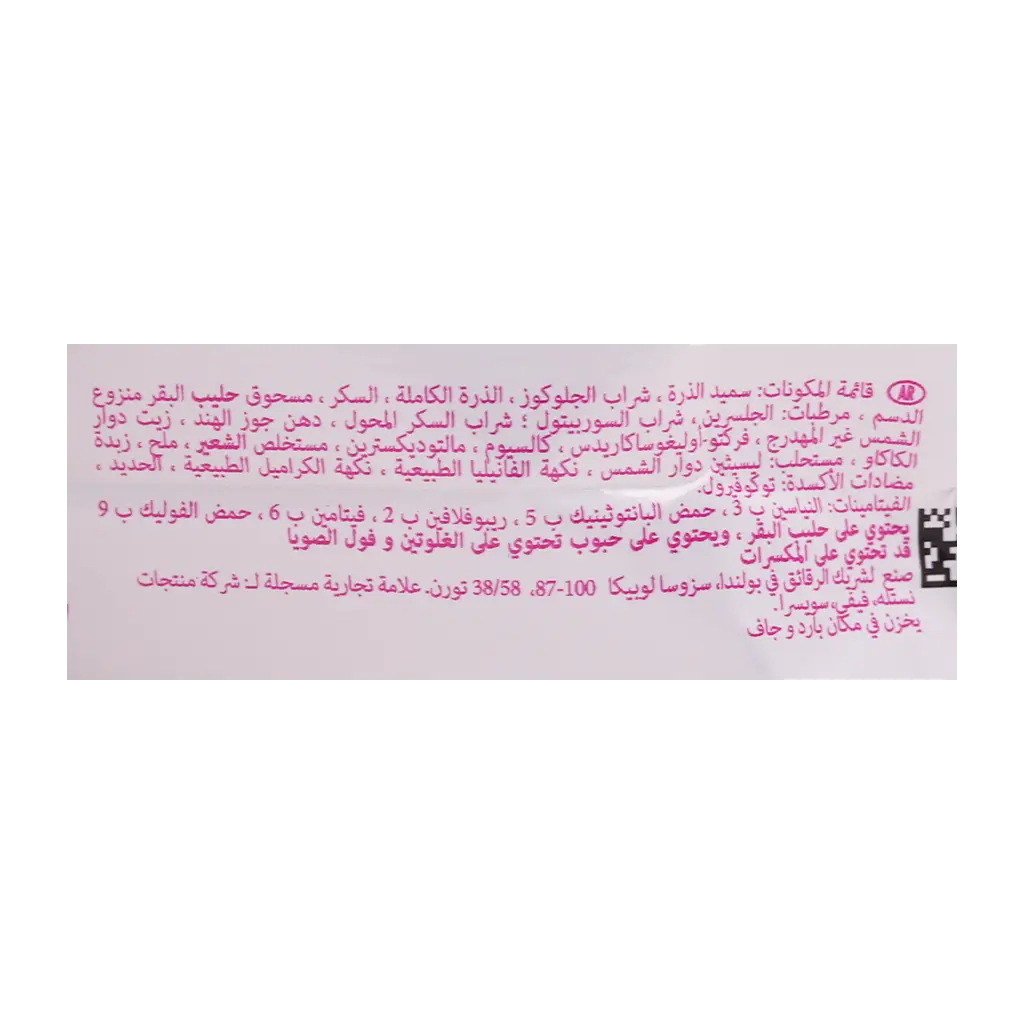 AR قائمة المكونات: سميد الذرة ، شراب الجلوكوز ، الذرة الكاملة ، السكر ، مسحوق حليب البقر منزوع
الدسم ، مرطبات: الجلسرين، شراب السوربيتول ؛ شراب السكر المحول ، دهن جوز الهند ، زيت دوار
الشمس غير المهدرج ، فركتو-أوليغوساكاريدس ، كالسيوم ، مالتوديكسترين ، مستخلص الشعير ، ملح ، زبدة
الكاكاو ، مستحلب: ليسيثين دوار الشمس ، نكهة الفانيليا الطبيعية ، نكهة الكراميل الطبيعية ، الحديد ،
مضادات الأكسدة: توكوفيرول.
الفيتامينات: النياسين ب 3 ، حمض البانتوثينيك ب 5 ، ريبوفلافين ب 2 ، فيتامين ب 6 ، حمض الفوليك ب 9
يحتوي على حليب البقر ، ويحتوي على حبوب تحتوي على الغلوتين و فول الصويا
قد تحتوي على المكسرات
صنع لشريك الرقائق في بولندا، سزوسا لوبيكا 100-87، 38/58 تورن. علامة تجارية مسجلة لـ: شركة منتجات
نستله، فيفي، سويسرا.
يخزن في مكان بارد و جاف